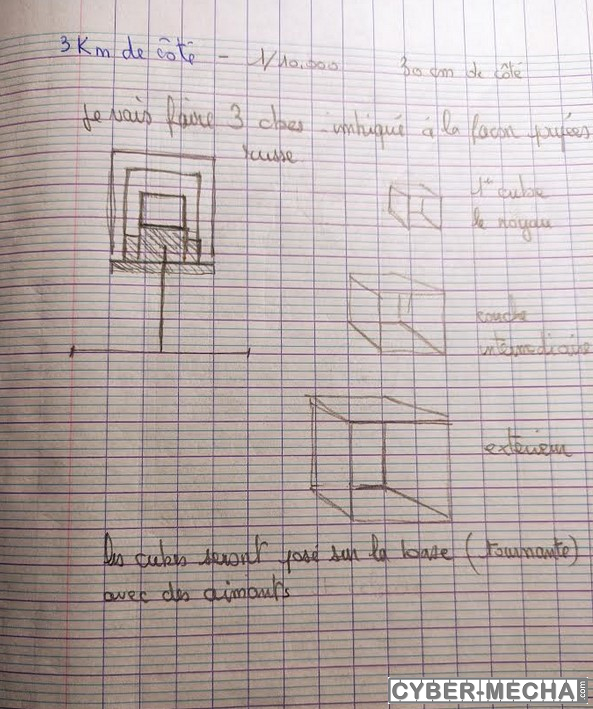 3 Km de côté - 1/10.000 30 cm de côté
Je vais faire 3 cubes imbriqué à la façon poupées
russe
1er cube
le noyau
couche
intermédiaire
extérieur
Les cubes seront posé sur la base (tournante)
avec des aimants
CYBER-MECHA.com